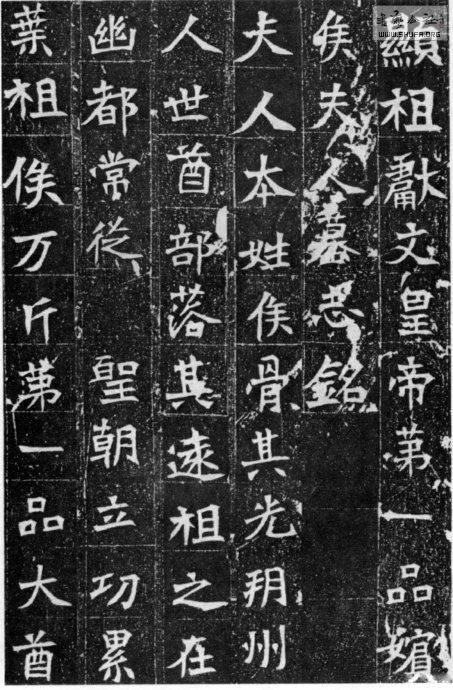 顯祖獻文皇帝苐一品嬪
侯夫人墓志銘
夫人本姓侯骨其先朔州
人世酋部落其遠祖之在
幽都常従　聖朝立功累
葉祖俟万斤苐一品大酋
WWW.SHUFA.ORG